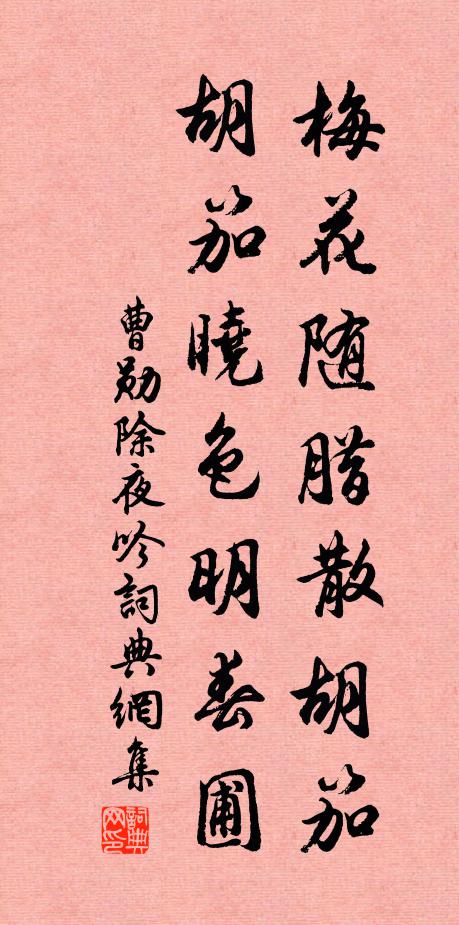 梅花随腊散胡笳
胡笳曉色明春圃
曹勛除夜吟詞典網集
詞典网印